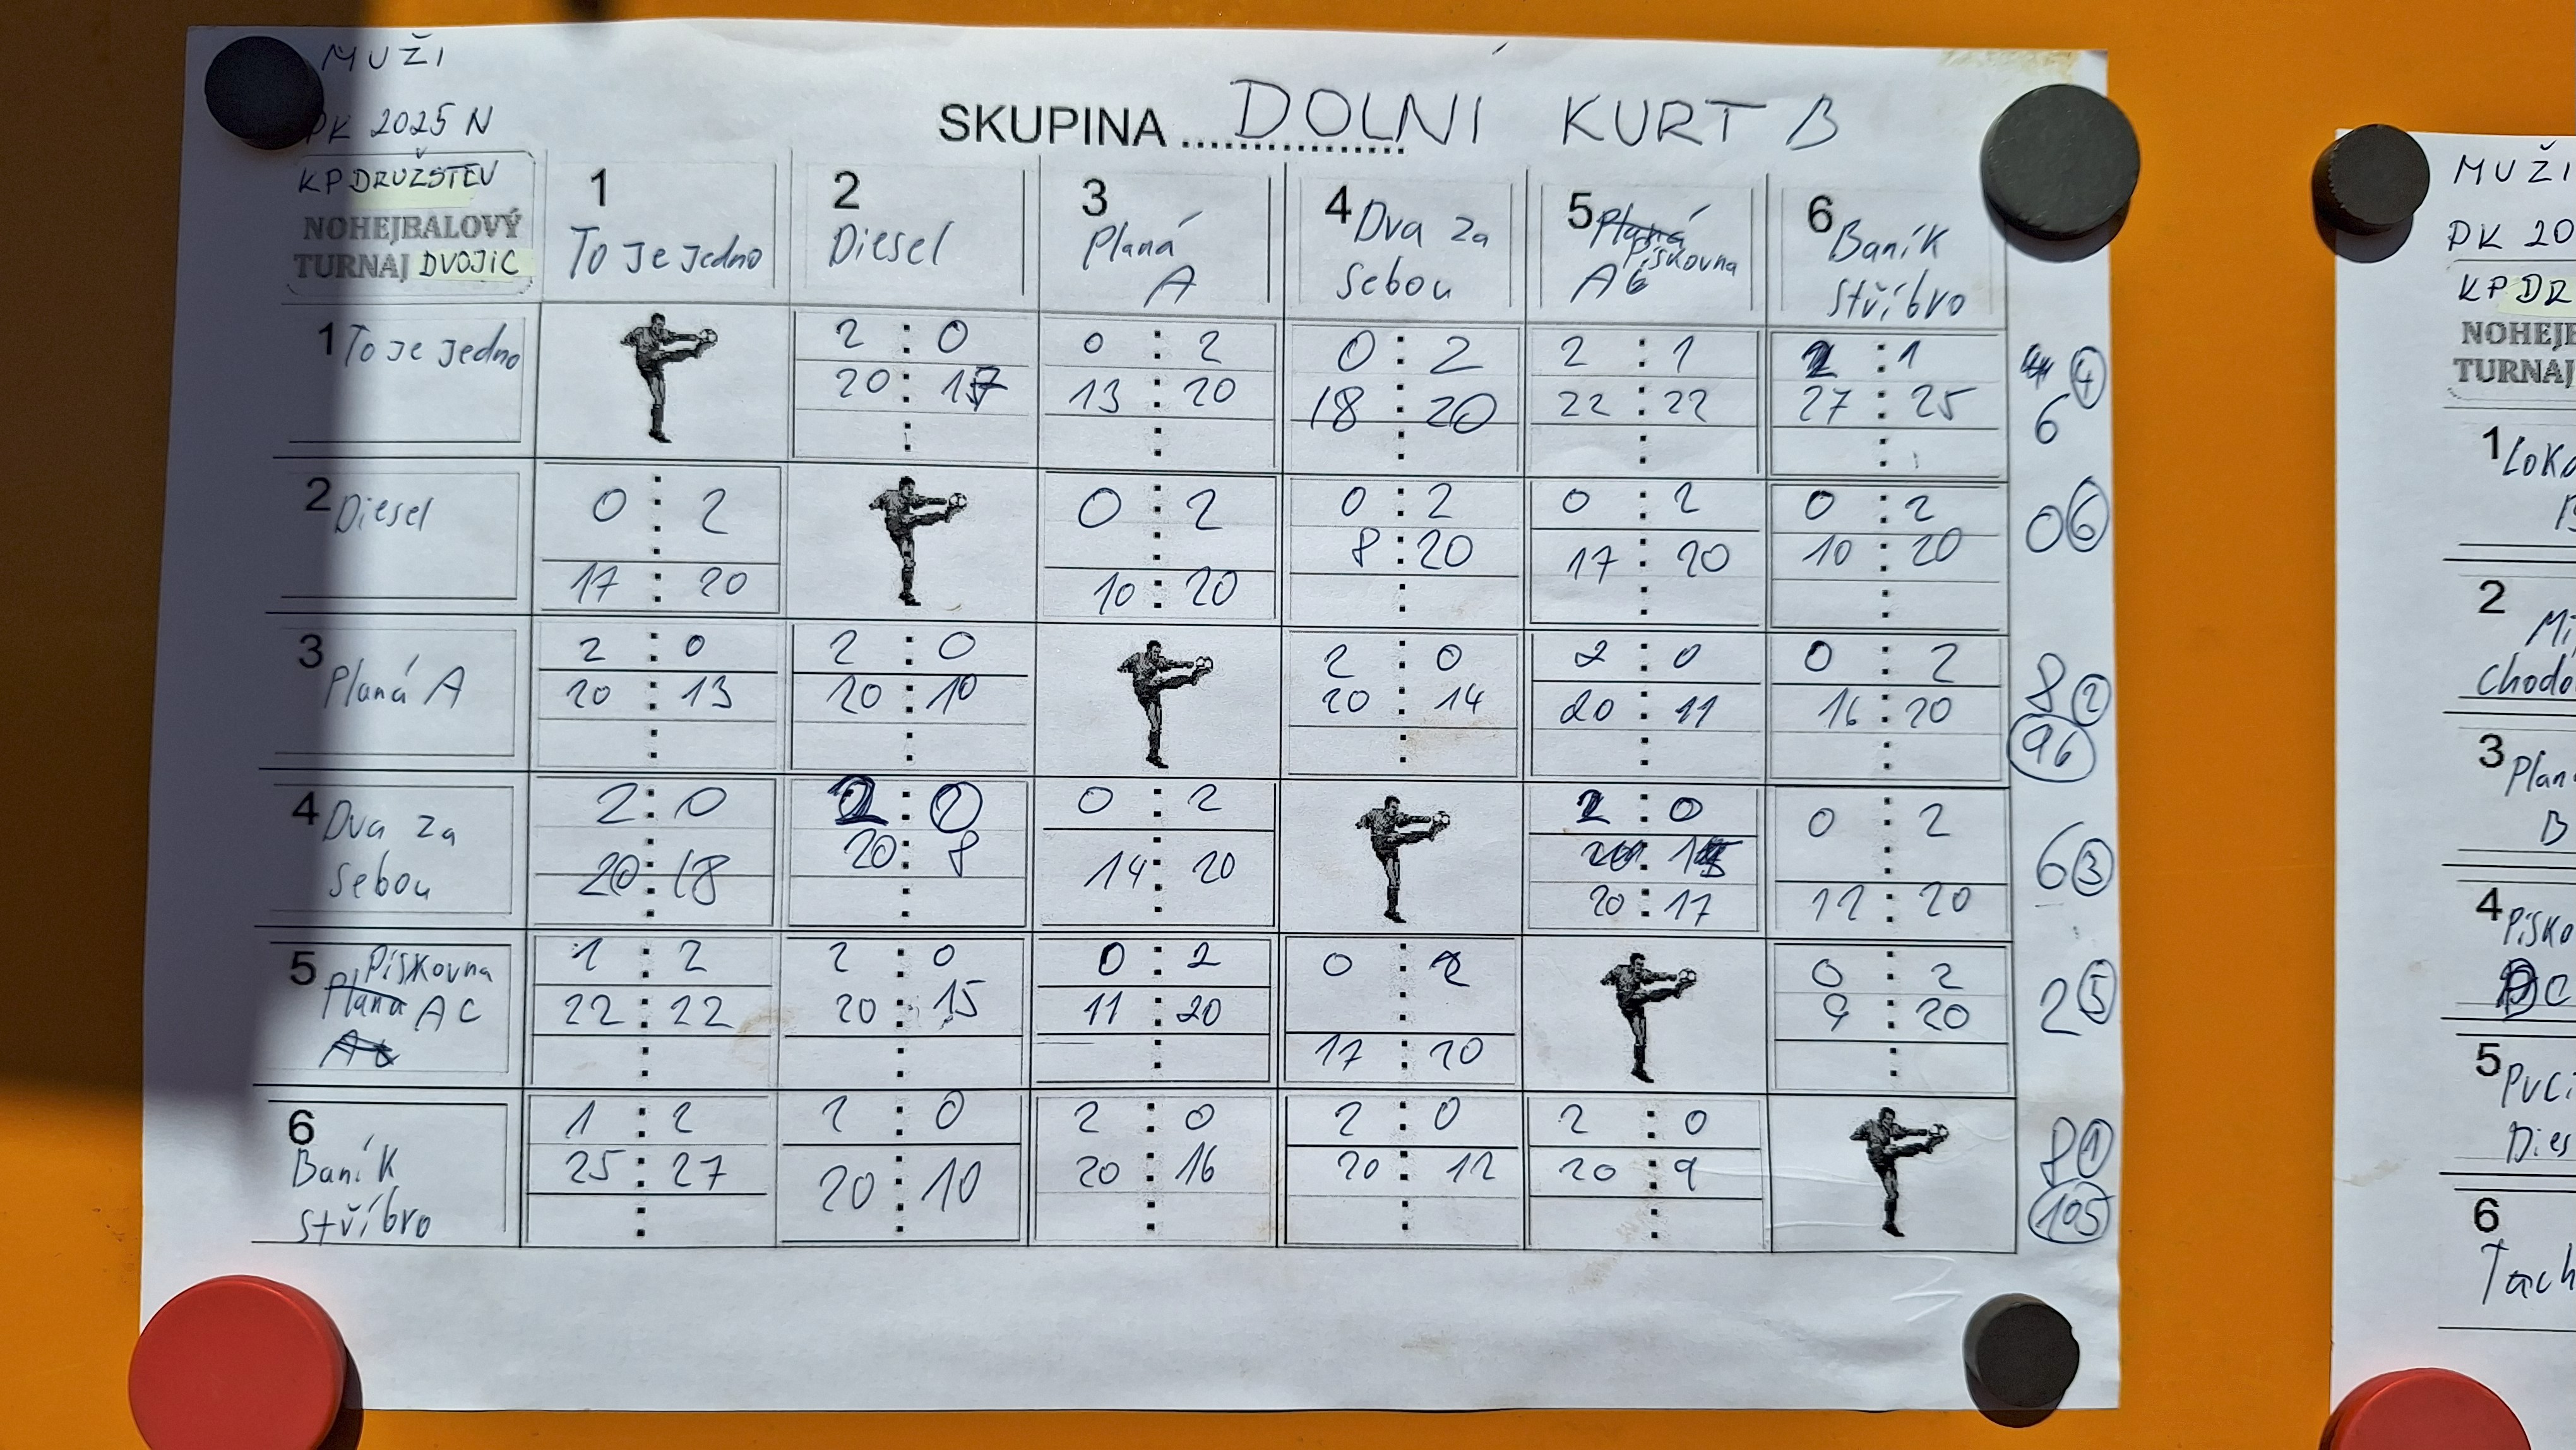 MUŽI
PK 2025 N
KP DRUŽSTEV
NOHEJBALOVÝ
TURNAJ DVOJIC
SKUPINA ............... DOLNÍ KURT B
1 To je jedno
2 Diesel
3 Planá A
4 Dva za sebou
5 Planá Pískovna A
6 Baník Stříbro
1 To je jedno
2 : 0
20 : 17
0 : 2
13 : 20
0 : 2
18 : 20
2 : 1
22 : 22
2 : 1
27 : 25
4
6
2 Diesel
0 : 2
17 : 20
0 : 2
10 : 20
0 : 2
8 : 20
0 : 2
17 : 20
0 : 2
10 : 20
0 6
3 Planá A
2 : 0
20 : 13
2 : 0
20 : 10
2 : 0
20 : 14
2 : 0
20 : 11
0 : 2
16 : 20
8 2
96
4 Dva za
sebou
2 : 0
20 : 18
2 : 0
20 : 8
0 : 2
14 : 20
2 : 0
20 : 17
0 : 2
12 : 20
6 3
5 Pískovna
Planá A C
1 : 2
22 : 22
2 : 0
20 : 15
0 : 2
11 : 20
0 : 2
17 : 20
0 : 2
9 : 20
2 5
6
Baník
Stříbro
1 : 2
25 : 27
2 : 0
20 : 10
2 : 0
20 : 16
2 : 0
20 : 12
2 : 0
20 : 9
8 1
105
MUŽI
PK 20
KP DR
NOHEJB
TURNAJ
1 Loko
B
2 Mi
Chodo
3 Plan
B
4 Písko
C
5 Puci
Dies
6
Tach